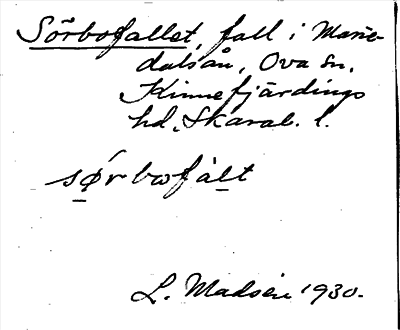 Sörbofallet, fall i Marie-
dalsån, Ova sn,
Kinnefjärdings
hd, Skarab. l.
sǿrbωfalt
L. Madsén 1930.